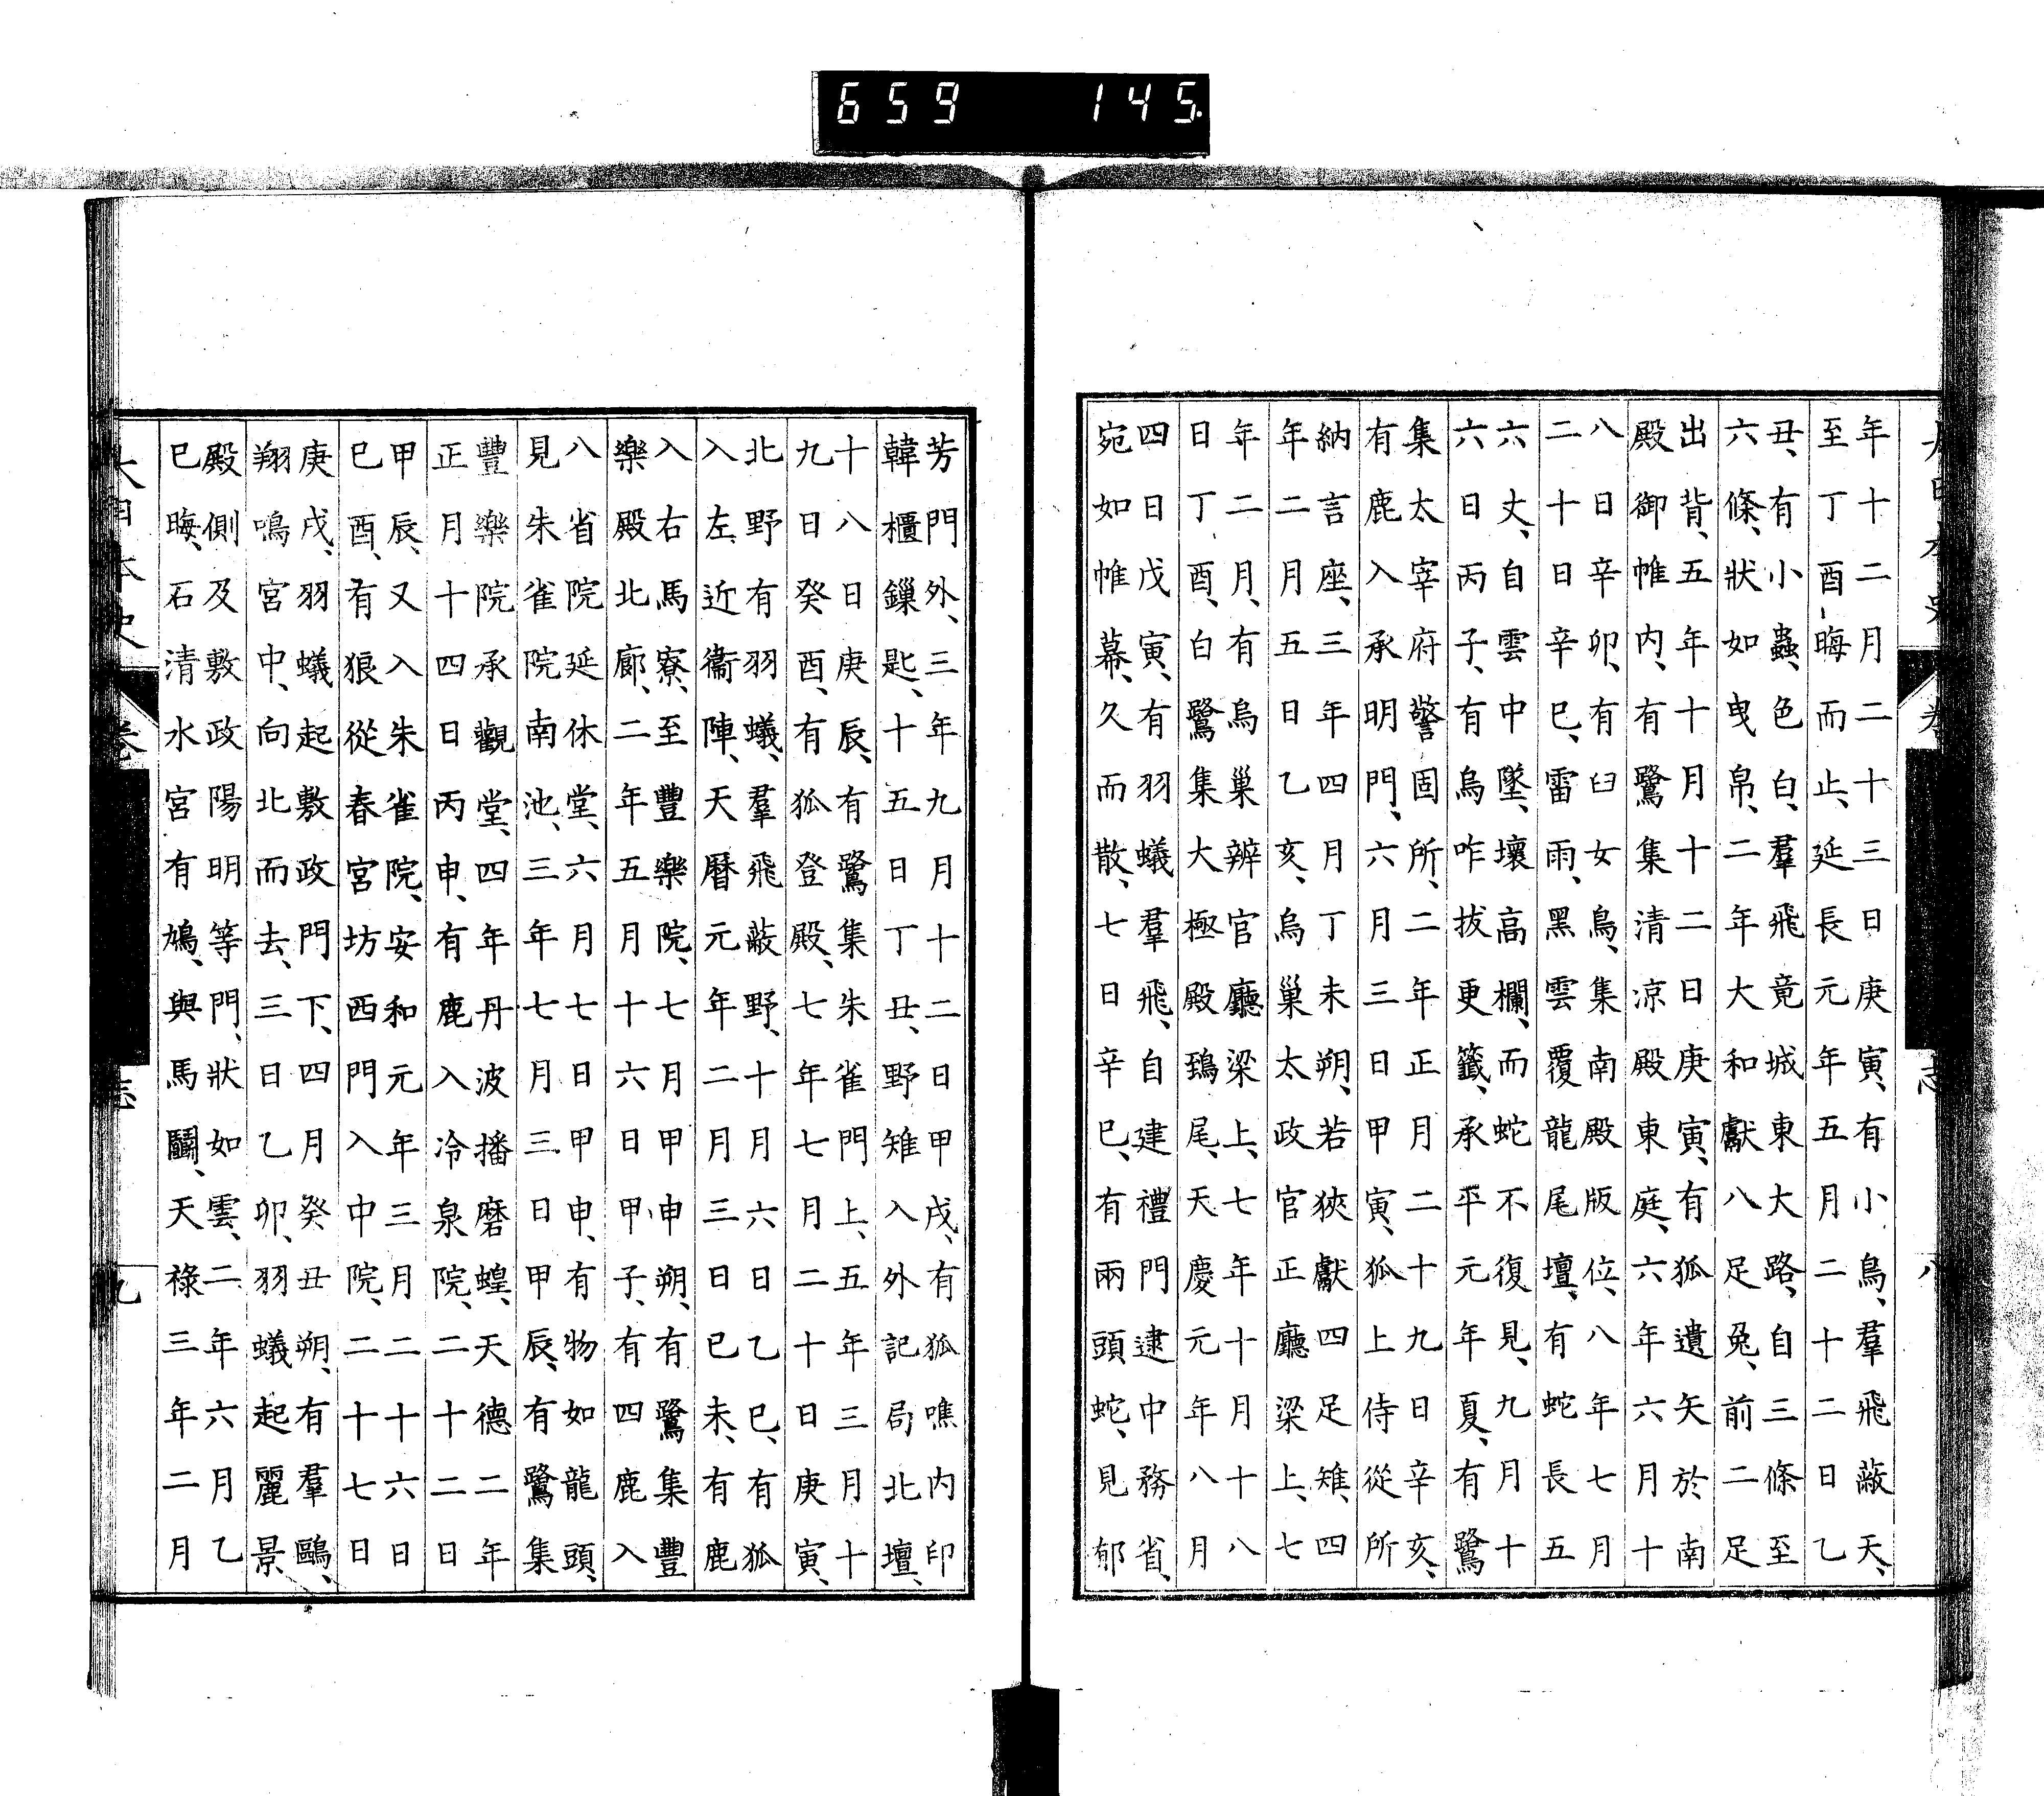 659 145
年十二月二十三日庚寅、有小鳥、羣飛蔽天、
至丁酉晦而止、延長元年五月二十二日乙
丑、有小蟲、色白、羣飛竟城東大路、自三條至
六條、狀如曳帛、二年大和獻八足兔、前二足
出背、五年十月十二日庚寅、有狐遺矢於南
殿御帷內、有鷺集清涼殿東庭、六年六月十
八日辛卯、有臼女鳥、集南殿版位、八年七月
二十日辛巳、雷雨、黑雲覆龍尾壇、有蛇長五
六丈、自雲中墜、壞高欄、而蛇不復見、九月十
六日丙子、有烏咋拔更籤、承平元年夏、有鷺
集太宰府警固所、二年正月二十九日辛亥、
有鹿入承明門、六月三日甲寅、狐上侍從所
納言座、三年四月丁未朔、若狹獻四足雉、四
年二月五日乙亥、烏巢太政官正廳梁上、七
年二月、有烏巢辨官廳梁上、七年十月十八
日丁酉、白鷺集大極殿鵄尾、天慶元年八月
四日戊寅、有羽蟻羣飛、自建禮門逮中務省、
宛如帷幕、久而散、七日辛巳、有兩頭蛇、見郁
芳門外、三年九月十二日甲戌、有狐噍內印
韓櫃鏁匙、十五日丁丑、野雉入外記局北壇、
十八日庚辰、有鷺集朱雀門上、五年三月十
九日癸酉、有狐登殿、七年七月二十日庚寅、
北野有羽蟻、羣飛蔽野、十月六日乙巳、有狐
入左近衞陣、天曆元年二月三日己未、有鹿
入右馬寮、至豐樂院、七月甲申朔、有鷺集豐
樂殿北廊、二年五月十六日甲子、有四鹿入
八省院延休堂、六月七日甲申、有物如龍頭、
見朱雀院南池、三年七月三日甲辰、有鷺集
豐樂院承觀堂、四年丹波播磨蝗、天德二年
正月十四日丙申、有鹿入冷泉院、二十二日
甲辰、又入朱雀院、安和元年三月二十六日
巳酉、有狼從春宮坊西門入中院、二十七日
庚戌、羽蟻起敷政門下、四月癸丑朔、有羣鷗、
翔鳴宮中、向北而去、三日乙卯、羽蟻起麗景
殿側及敷政陽明等門、狀如雲、二年六月乙
巳晦、石清水宮有鳩、與馬鬭、天祿三年二月
大日本史 卷 志 九